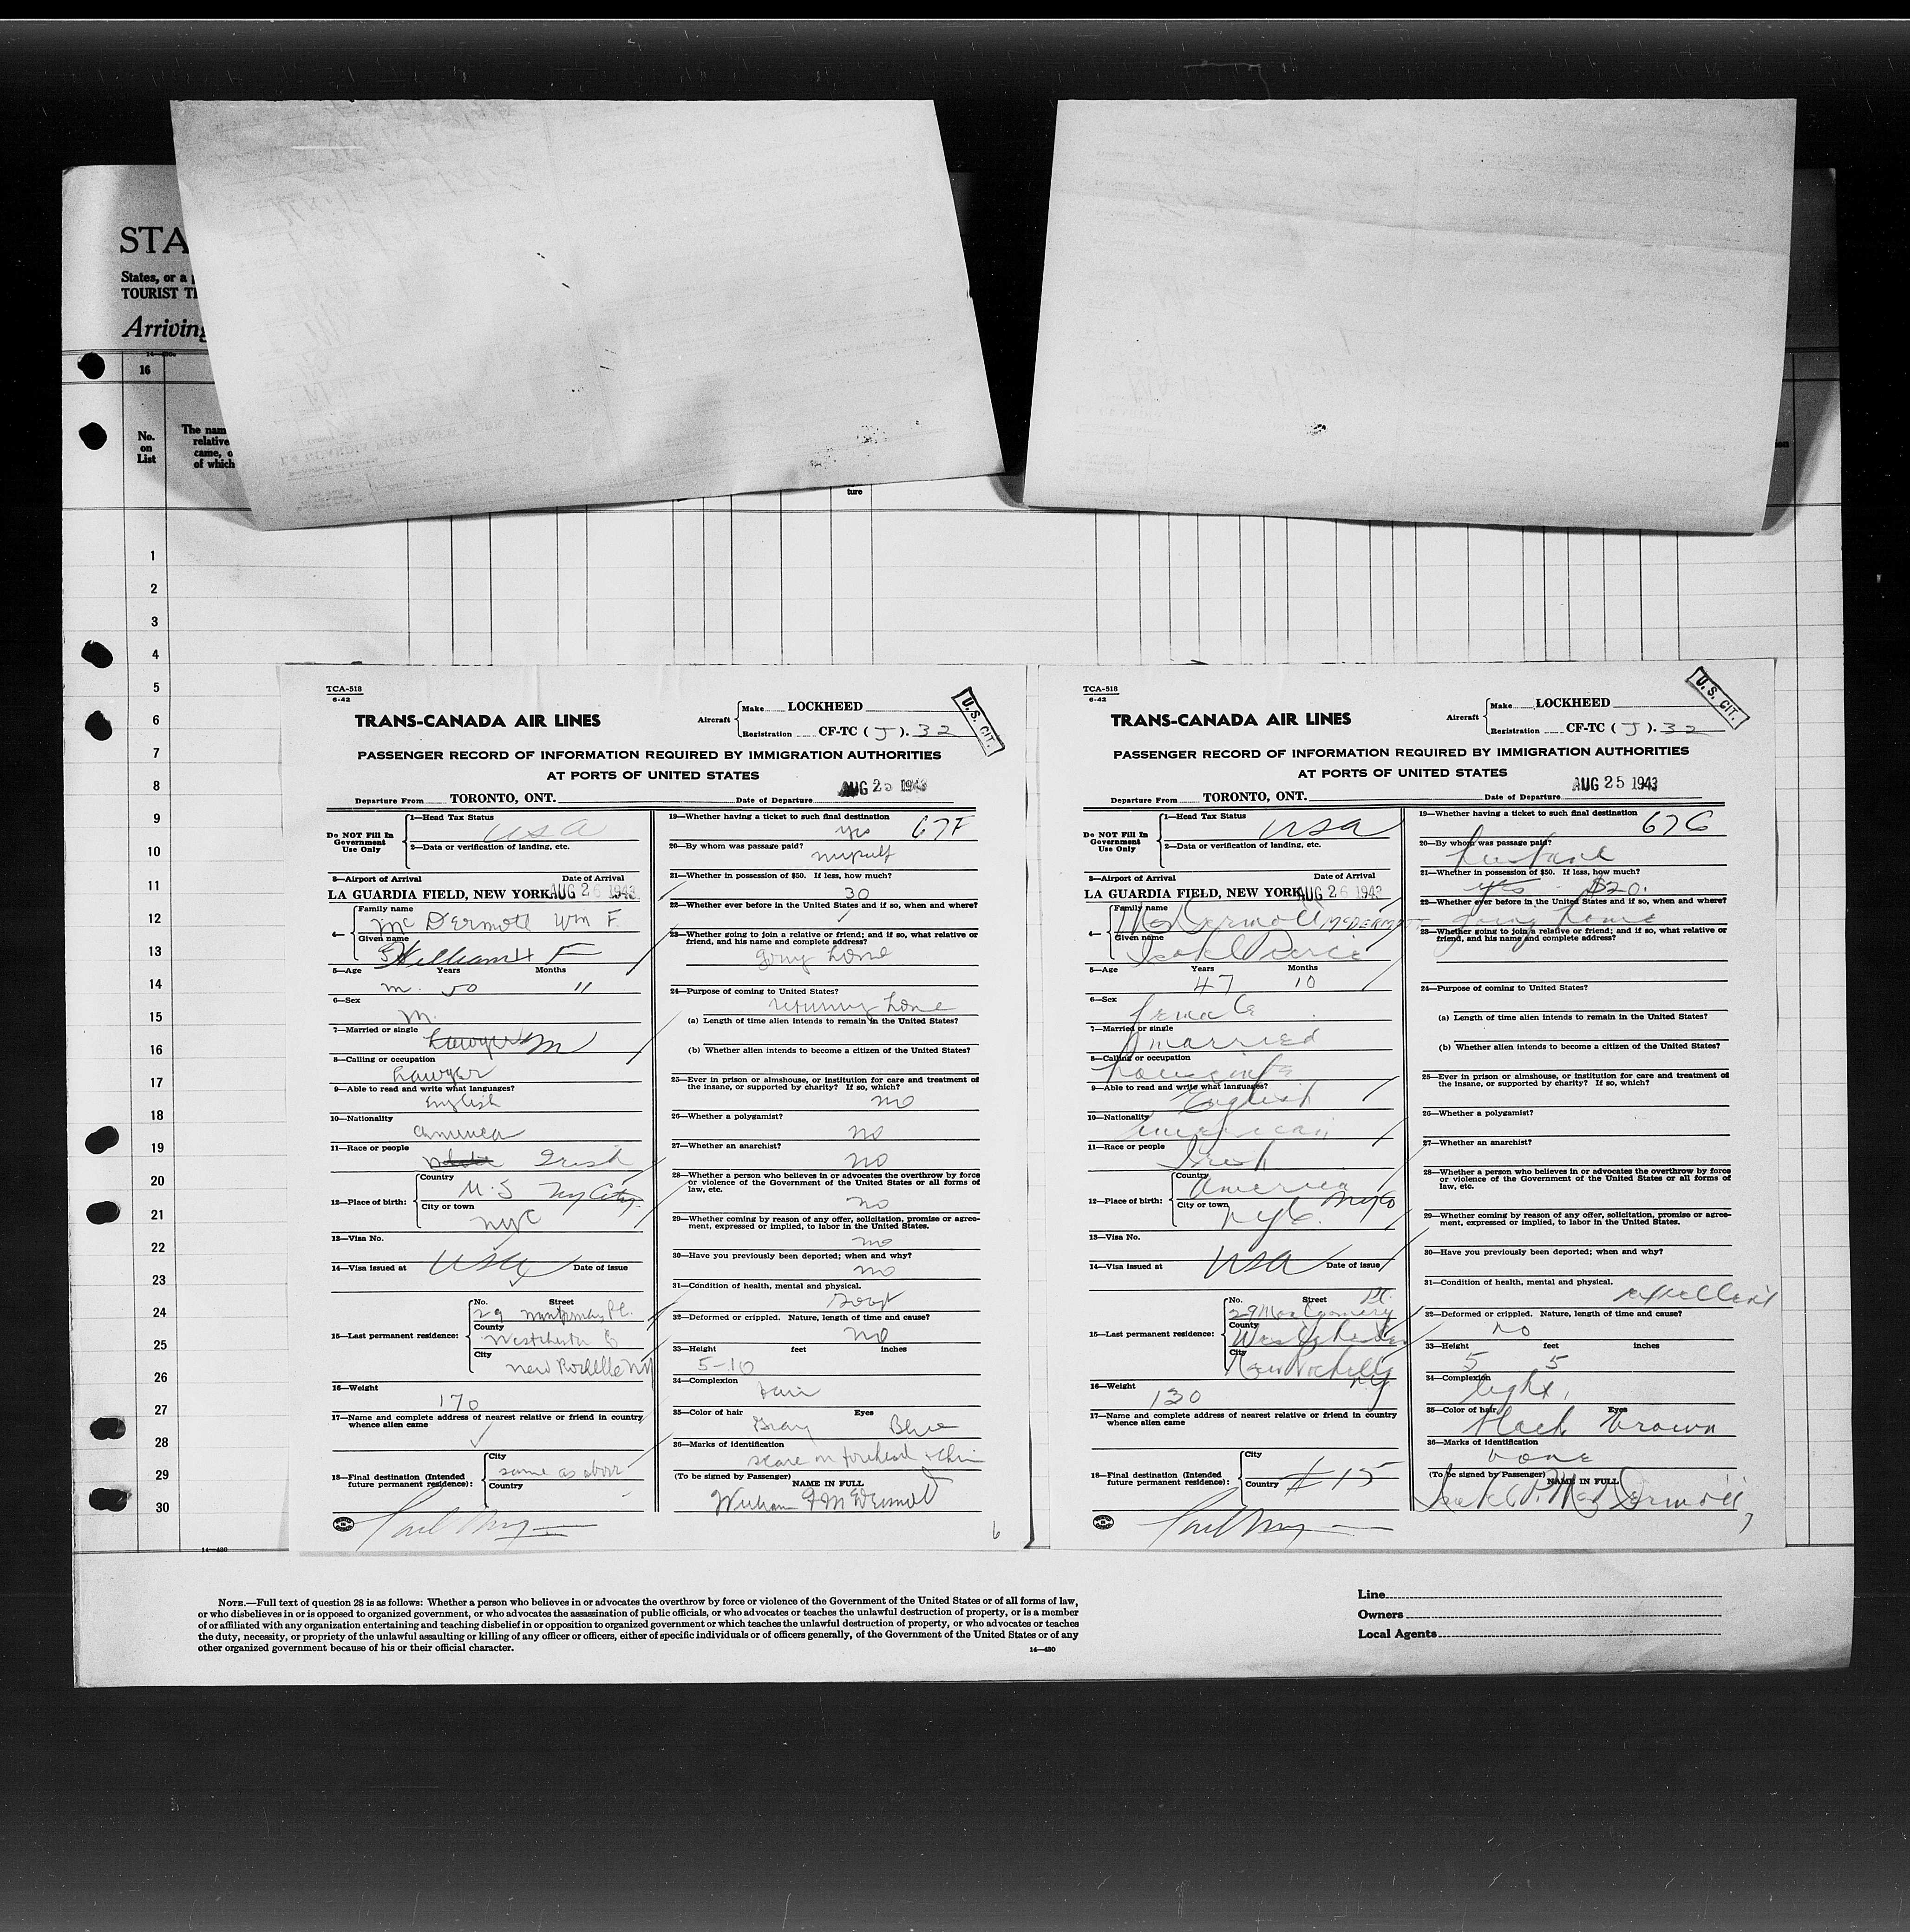 STA
States, or a
TOURIST
Arriving
16
No.
on
List
The nam
relative
came, o
of which
ture
1
2
3
4
5
6
7
8
9
10
11
12
13
14
15
16
17
18
19
20
21
22
23
24
25
26
27
28
29
30
TCA-518
6-42
TRANS-CANADA AIR LINES
Aircraft
Make LOCKHEED
Registration CF-TC ( J ). 32
U.S. CIT.
PASSENGER RECORD OF INFORMATION REQUIRED BY IMMIGRATION AUTHORITIES
AT PORTS OF UNITED STATES
Departure From TORONTO, ONT. Date of Departure AUG 25 1943
Do NOT Fill In
Government
Use Only
1—Head Tax Status
USA
2—Data or verification of landing, etc.
3—Airport of Arrival Date of Arrival
LA GUARDIA FIELD, NEW YORK AUG 26 1943
4—
Family name
Mc Dermott Wm F.
Given name
William F
5—Age Years Months
m. 50 11
6—Sex
M.
7—Married or single
Lawyer M
8—Calling or occupation
Lawyer
9—Able to read and write what languages?
English
10—Nationality
America
11—Race or people
White Irish
12—Place of birth:
Country
U.S NY City
City or town
NYC
13—Visa No.
14—Visa issued at USA Date of issue
15—Last permanent residence:
No. Street
29 Montgomery Pl.
County
Westchester Co
City
New Rochelle NY
16—Weight
170
17—Name and complete address of nearest relative or friend in country
whence alien came
✓
18—Final destination (Intended
future permanent residence):
City
same as above
Country
19—Whether having a ticket to such final destination
yes 67F
20—By whom was passage paid?
myself
21—Whether in possession of $50. If less, how much?
30
22—Whether ever before in the United States and if so, when and where?
23—Whether going to join a relative or friend; and if so, what relative or
friend, and his name and complete address?
going home
24—Purpose of coming to United States?
returning home
(a) Length of time alien intends to remain in the United States?
(b) Whether alien intends to become a citizen of the United States?
25—Ever in prison or almshouse, or institution for care and treatment of
the insane, or supported by charity? If so, which?
no
26—Whether a polygamist?
no
27—Whether an anarchist?
no
28—Whether a person who believes in or advocates the overthrow by force
or violence of the Government of the United States or all forms of
law, etc.
no
29—Whether coming by reason of any offer, solicitation, promise or agree-
ment, expressed or implied, to labor in the United States.
no
30—Have you previously been deported; when and why?
no
31—Condition of health, mental and physical.
Good
32—Deformed or crippled. Nature, length of time and cause?
no
33—Height feet inches
5-10
34—Complexion
Fair
35—Color of hair Eyes
Gray Blue
36—Marks of identification
scare on forehead + chin
(To be signed by Passenger) NAME IN FULL
William F McDermott
6
TCA-518
6-42
TRANS-CANADA AIR LINES
Aircraft
Make LOCKHEED
Registration CF-TC ( J ). 32
U.S. CIT.
PASSENGER RECORD OF INFORMATION REQUIRED BY IMMIGRATION AUTHORITIES
AT PORTS OF UNITED STATES
Departure From TORONTO, ONT. Date of Departure AUG 25 1943
Do NOT Fill In
Government
Use Only
1—Head Tax Status
USA
2—Data or verification of landing, etc.
3—Airport of Arrival Date of Arrival
LA GUARDIA FIELD, NEW YORK AUG 26 1943
4—
Family name
MacDermott McDERMOTT
Given name
Pearce
5—Age Years Months
47 10
6—Sex
female
7—Married or single
married
8—Calling or occupation
housewife
9—Able to read and write what languages?
English
10—Nationality
American
11—Race or people
Irish
12—Place of birth:
Country
America
City or town
NYC.
13—Visa No.
14—Visa issued at USA Date of issue
15—Last permanent residence:
No. Street
29 Montgomery Pl.
County
Westchester
City
New Rochelle
NY
16—Weight
130
17—Name and complete address of nearest relative or friend in country
whence alien came
18—Final destination (Intended
future permanent residence):
City
Country
# 15
19—Whether having a ticket to such final destination
67G
20—By whom was passage paid?
husband
21—Whether in possession of $50. If less, how much?
yes - $20.
22—Whether ever before in the United States and if so, when and where?
going home
23—Whether going to join a relative or friend; and if so, what relative or
friend, and his name and complete address?
24—Purpose of coming to United States?
(a) Length of time alien intends to remain in the United States?
(b) Whether alien intends to become a citizen of the United States?
25—Ever in prison or almshouse, or institution for care and treatment of
the insane, or supported by charity? If so, which?
26—Whether a polygamist?
27—Whether an anarchist?
28—Whether a person who believes in or advocates the overthrow by force
or violence of the Government of the United States or all forms of
law, etc.
29—Whether coming by reason of any offer, solicitation, promise or agree-
ment, expressed or implied, to labor in the United States.
30—Have you previously been deported; when and why?
31—Condition of health, mental and physical.
excellent
32—Deformed or crippled. Nature, length of time and cause?
no
33—Height feet inches
5 5
34—Complexion
light
35—Color of hair Eyes
black brown
36—Marks of identification
none
(To be signed by Passenger) NAME IN FULL
P. MacDermott
7
14—430
NOTE.—Full text of question 28 is as follows: Whether a person who believes in or advocates the overthrow by force or violence of the Government of the United States or of all forms of law,
or who disbelieves in or is opposed to organized government, or who advocates the assassination of public officials, or who advocates or teaches the unlawful destruction of property, or is a member
of or affiliated with any organization entertaining and teaching disbelief in or opposition to organized government or which teaches the unlawful destruction of property, or who advocates or teaches
the duty, necessity, or propriety of the unlawful assaulting or killing of any officer or officers, either of specific individuals or of officers generally, of the Government of the United States or of any
other organized government because of his or their official character.
14—430
Line
Owners
Local Agents